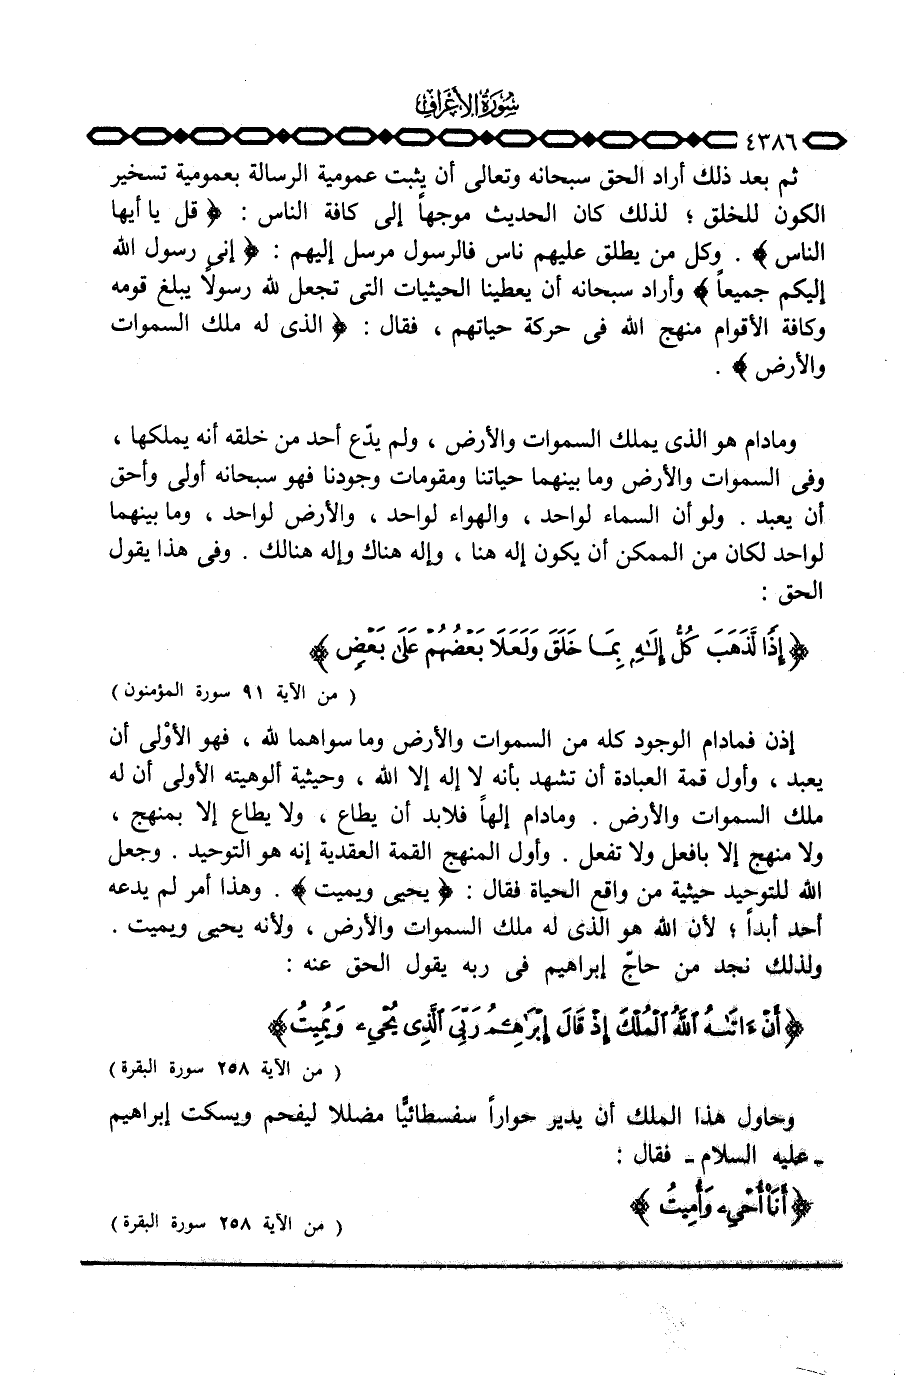 سُورَةُ الأَعْرَافِ
٤٣٨٦
ثم بعد ذلك أراد الحق سبحانه وتعالى أن يثبت عمومية الرسالة بعمومية تسخير
الكون للخلق ؛ لذلك كان الحديث موجهاً إلى كافة الناس : ﴿ قل يا أيها
الناس ﴾ . وكل من يطلق عليهم ناس فالرسول مرسل إليهم : ﴿ إنى رسول الله
إليكم جميعاً ﴾ وأراد سبحانه أن يعطينا الحيثيات التى تجعل لله رسولاً يبلغ قومه
وكافة الأقوام منهج الله فى حركة حياتهم ، فقال : ﴿ الذى له ملك السموات
والأرض ﴾ .
ومادام هو الذى يملك السموات والأرض ، ولم يدّع أحد من خلقه أنه يملكها ،
وفى السموات والأرض وما بينهما حياتنا ومقومات وجودنا فهو سبحانه أولى وأحق
أن يعبد . ولو أن السماء لواحد ، والهواء لواحد ، والأرض لواحد ، وما بينهما
لواحد لكان من الممكن أن يكون إله هنا ، وإله هناك وإله هنالك . وفى هذا يقول
الحق :
﴿ إِذًا لَّذَهَبَ كُلُّ إِلَٰهٍۭ بِمَا خَلَقَ وَلَعَلَا بَعْضُهُمْ عَلَىٰ بَعْضٍ ﴾
( من الآية ٩١ سورة المؤمنون )
إذن فمادام الوجود كله من السموات والأرض وما سواهما لله ، فهو الأوْلى أن
يعبد ، وأول قمة العبادة أن تشهد بأنه لا إله إلا الله ، وحيثية ألوهيته الأولى أن له
ملك السموات والأرض . ومادام إلهاً فلابد أن يطاع ، ولا يطاع إلا بمنهج ،
ولا منهج إلا بافعل ولا تفعل . وأول المنهج القمة العقدية إنه هو التوحيد . وجعل
الله للتوحيد حيثية من واقع الحياة فقال : ﴿ يحيى ويميت ﴾ . وهذا أمر لم يدعه
أحد أبداً ؛ لأن الله هو الذى له ملك السموات والأرض ، ولأنه يحيى ويميت .
ولذلك نجد من حاجّ إبراهيم فى ربه يقول الحق عنه :
﴿ أَنْ ءَاتَىٰهُ ٱللَّهُ ٱلْمُلْكَ إِذْ قَالَ إِبْرَٰهِـۧمُ رَبِّىَ ٱلَّذِى يُحْىِۦ وَيُمِيتُ ﴾
( من الآية ٢٥٨ سورة البقرة )
وحاول هذا الملك أن يدير حواراً سفسطائيًّا مضللا ليفحم ويسكت إبراهيم
ـ عليه السلام ـ فقال :
﴿ أَنَا۠ أُحْىِۦ وَأُمِيتُ ﴾
( من الآية ٢٥٨ سورة البقرة )